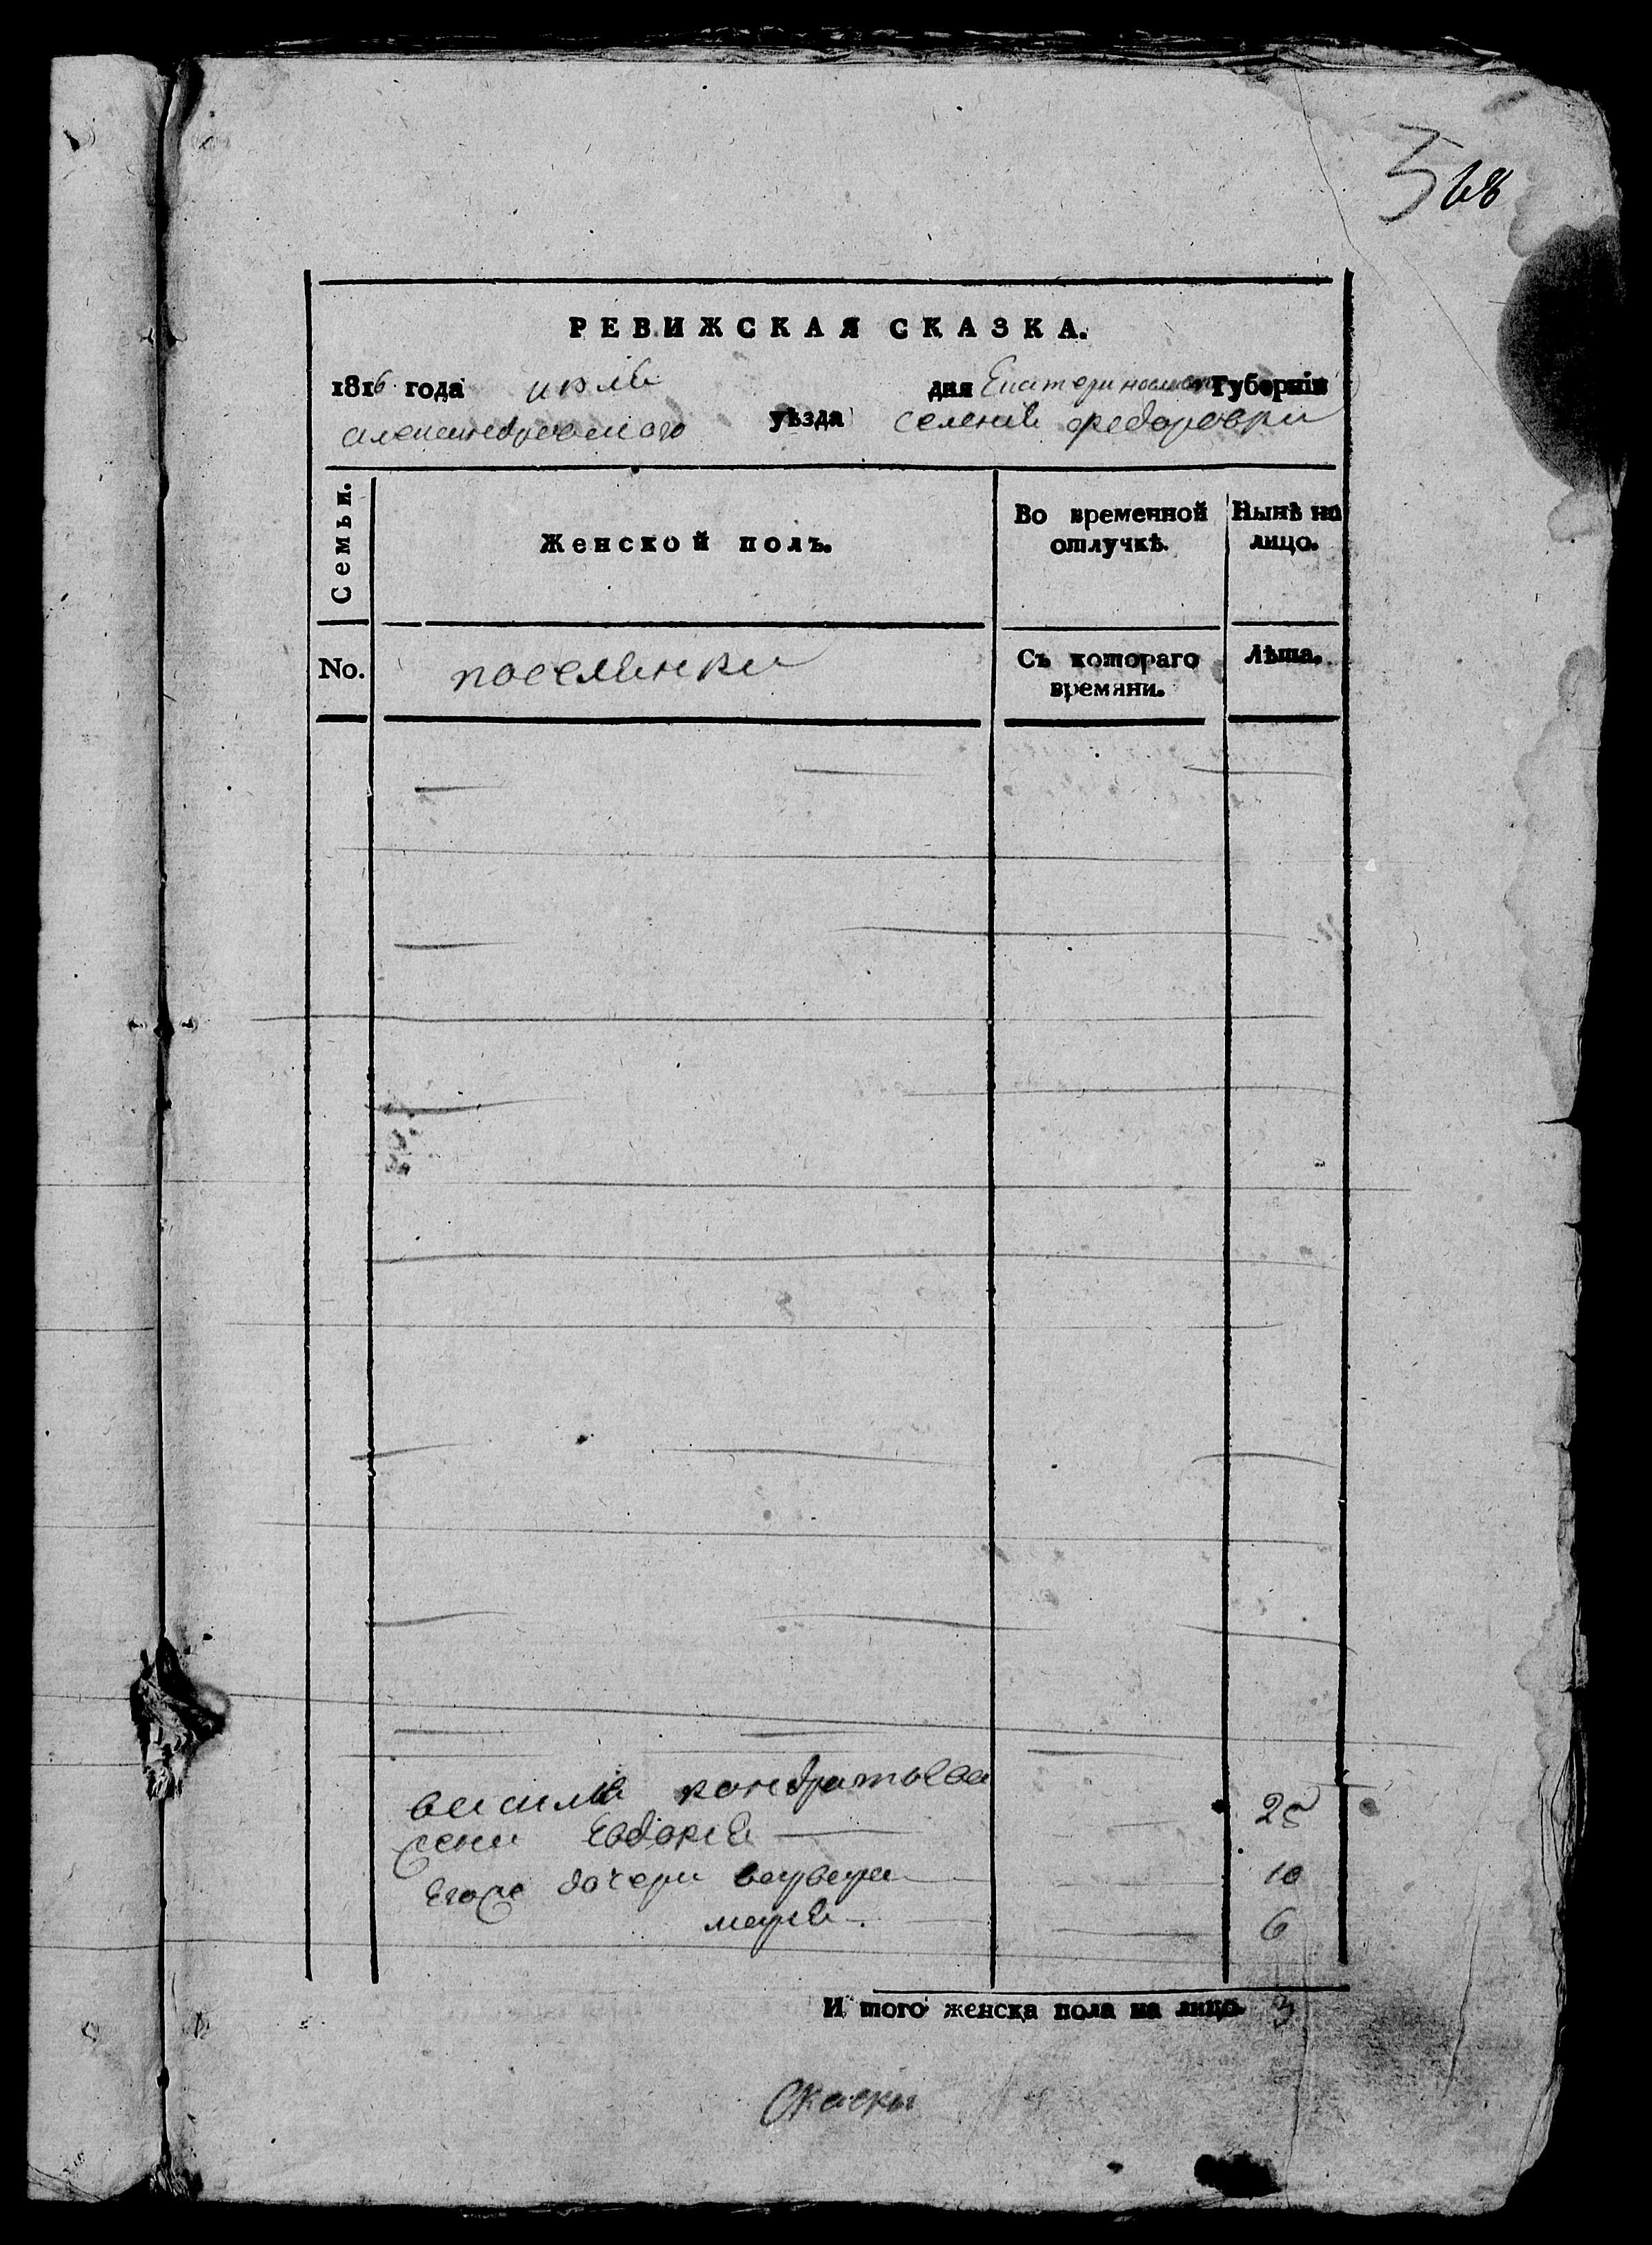 5 68
РЕВИЖСКАЯ СКАЗКА.
1816 года июля дня Екатеринославской Губернїи
александровского уѣзда селения федоровки
Семьи.
Женской полъ.
Во временной отлучкѣ.
Нынѣ на лицо.
No.
поселянки
Съ котораго времяни.
Лѣта.
василия кондратьева
жена Евдокия 25
Егоже дочери варвара 10
мария 6
И того женска пола на лицо. 3
Скаски